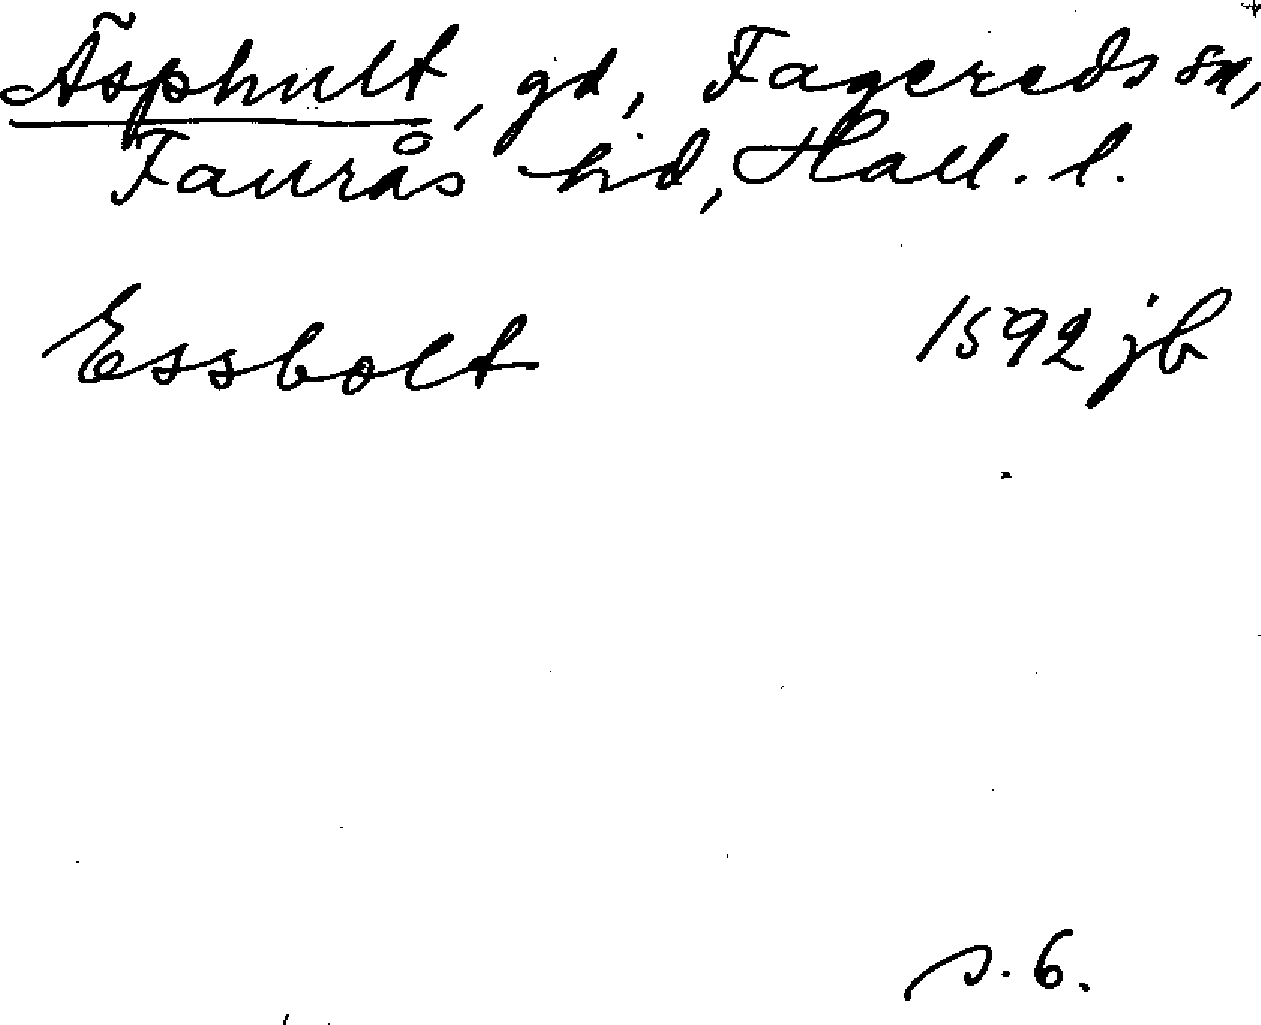 Äsphult, gd, Fagereds sn,
Faurås hd, Hall. l.
Essbolt 1592 jb
s. 6.